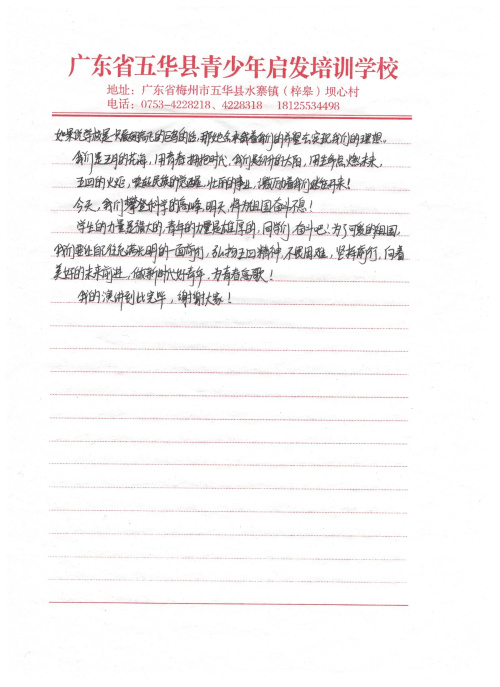 广东省五华县青少年启发培训学校
地址：广东省梅州市五华县水寨镇（梓皋）坝心村
电话：0753-4228218、4228318 18125534498
如果说学校是一艘的巨轮的话，那就会承载着我们的希望去实现我们的理想。
我们是五月的花海，用青春拥抱时代，我们是初升的太阳，用生命点燃未来，
五四的火炬，唤起民族的觉醒，壮丽的事业，激励着我们继往开来！
今天，我们攀登科学的高峰，明天，将为祖国奋斗不息！
学生的力量是强大的，青年的力量是雄厚的，同学们，奋斗吧！为了可爱的祖国，
我们要让自己往充满光明的一面前行，弘扬五四精神，不畏困难，坚持前行，向着
美好的未来前进，做新时代好青年，为青春高歌！
我的演讲到此完毕，谢谢大家！